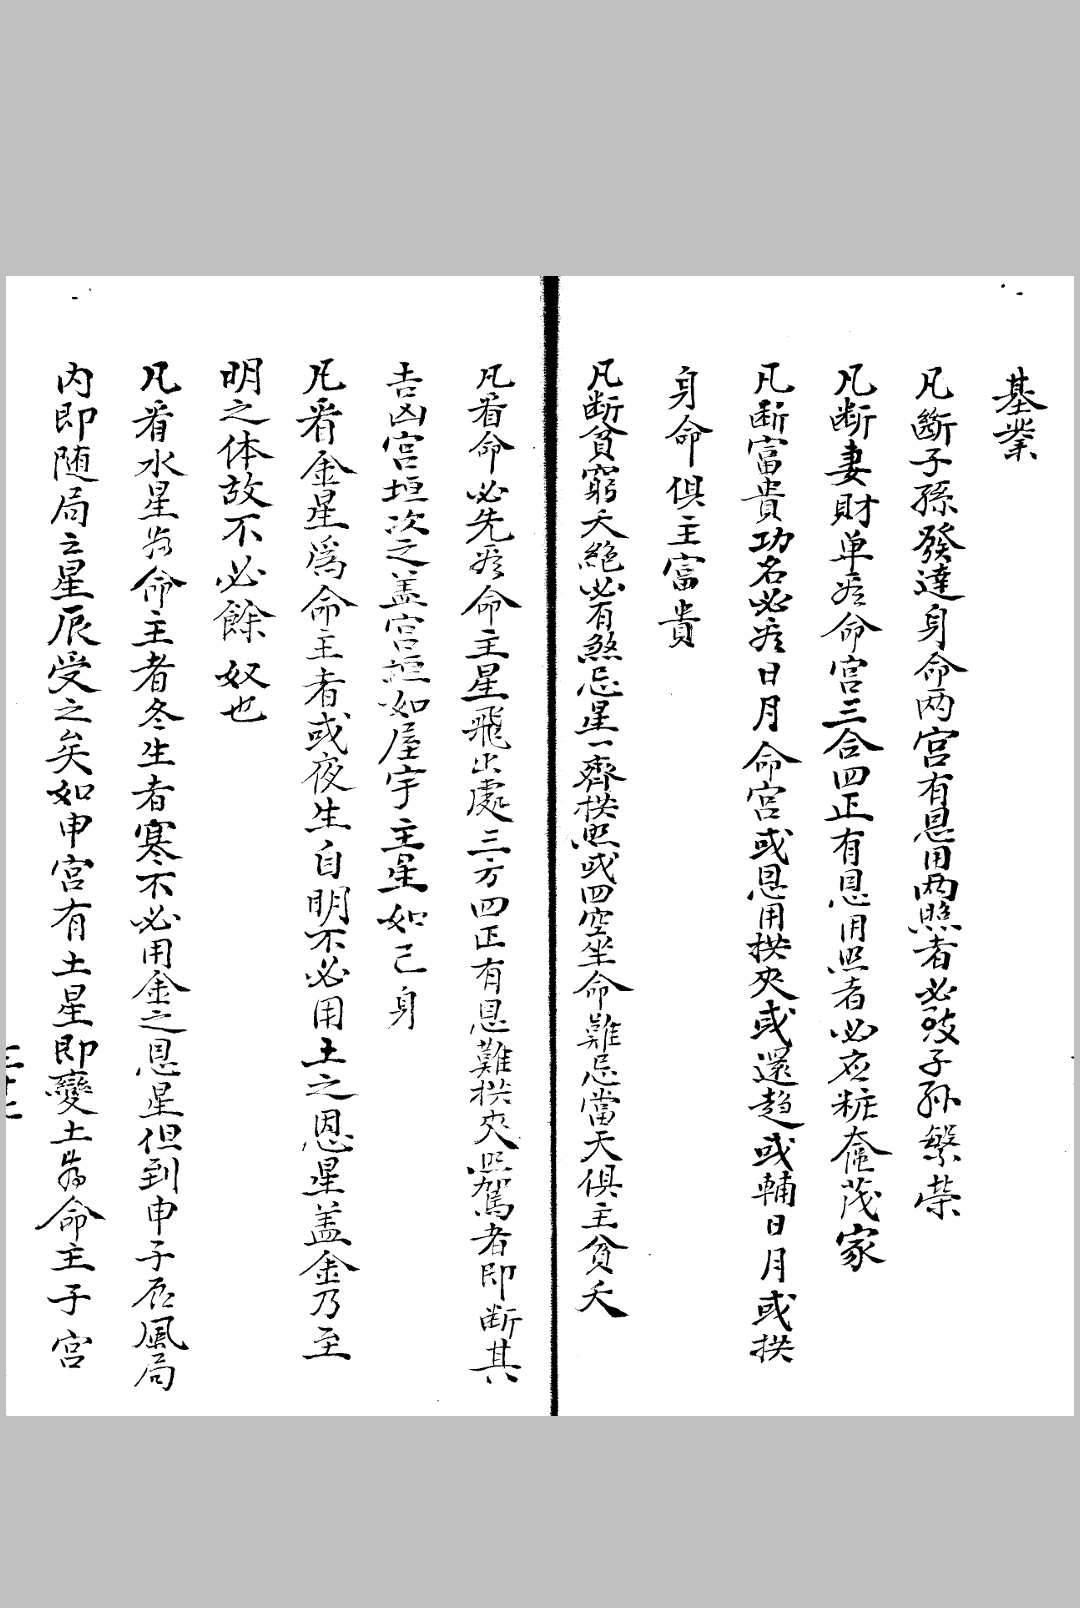 基業
凡斷子孫發達身命两宫有恩用两照者必發子孙繁荣
凡断妻財单於命宫三合四正有恩用照者必應粧奩茂家
凡断富貴功名必於日月命宫或恩用拱夾或還趋或輔日月或拱
身命俱主富貴
凡断貧窮夭絕必有煞忌星一齊拱照或四空坐命難忌當天俱主貧夭
凡看命必先於命主星飛出處三方四正有恩難拱夾照駕者即断其
吉凶宫垣次之盖宫垣如屋宇主星如己身
凡看金星爲命主者或夜生自明不必用土之恩星盖金乃至
明之体故不必餘奴也
凡看水星為命主者冬生者寒不必用金之恩星但到申子辰風局
内即随局之星辰受之矣如申宫有土星即變土為命主子宫
二十七